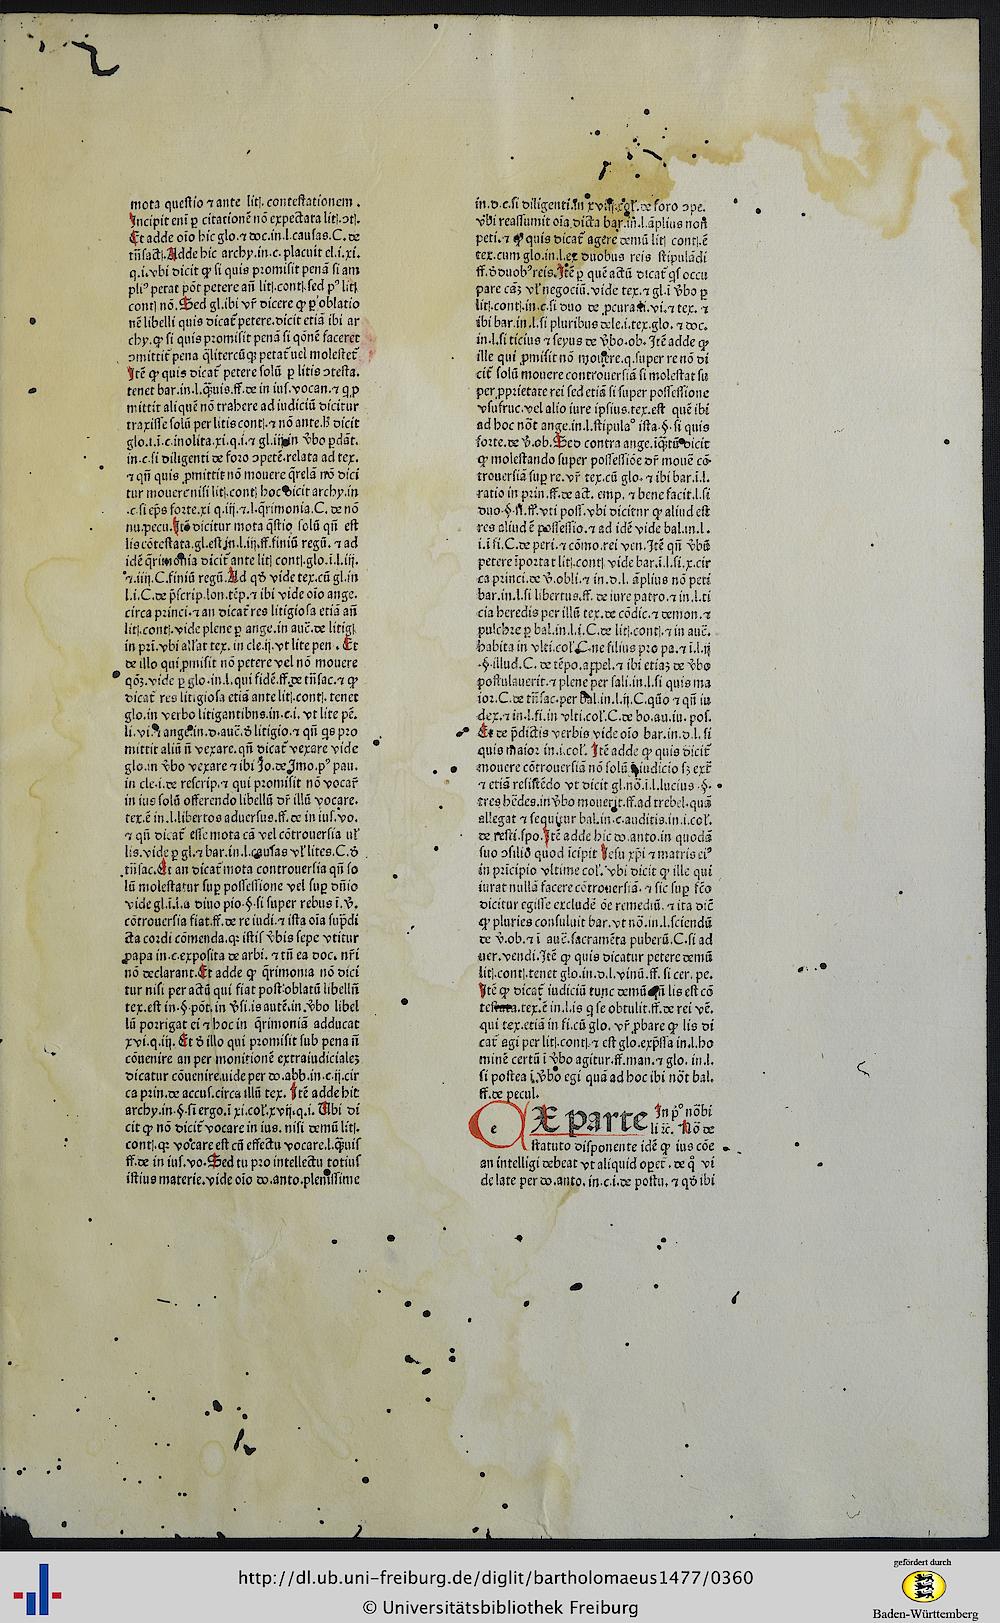 mota questio ⁊ ante litꝭ. contestationem.
Incipit eni᷑ ꝑ citationē nō expectata litꝭ.ↄtꝭ.
Et adde oīo hic glo.⁊ doc.in.l.causas.C.de
trāsact̄. Adde hic archy.in.c.placuit el.i.xi.
q.i.vbi dicit ꝙ si quis promisit penā si am
pliꝰ petat pōt petere an̄ litꝭ.contꝭ.sed pꝰ litꝭ
contꝭ nō. Sed gl.ibi vr̄ dicere ꝙ ꝑ oblatio
nē libelli quis dicat̄ petere.dicit etiā ibi ar
chy.ꝙ si quis promisit penā si q̄onē faceret
ↄmittit̄ pena q̄litercūqꝫ petat̄ uel molestet̄
Itē ꝙ quis dicat̄ petere solū ꝑ litis ↄtesta.
tenet bar.in.l.q̄uis.ff.de in ius.vocan.⁊ ꝙ ꝓ
mittit aliquē nō trahere ad iudiciū dicitur
traxisse solū per litis contꝭ.⁊ nō ante.
in.c.si diligenti de foro ↄpetē.relata ad tex.
⁊ qn̄ quis ꝓmittit nō mouere q̄relā nō dici
tur mouere nisi litꝭ.contꝭ hoc dicit archy.in
.c.si ep̄s forte.xi q.iij.⁊.l.q̄rimonia.C.de nō
nu.pecu. Itē dicitur mota q̄stio solū qn̄ est
lis cōtestata.gl.est in.l.iij.ff.finiū regū.⁊ ad
idē q̄rimonia dicit̄ ante litꝭ contꝭ.glo.i.l.iij.
⁊.iiij.C.finiū regū. Ad qđ vide tex.cū gl.in
l.i.C.de p̄scrip.lon.tēp.⁊ ibi vide oīo ange.
circa princi.⁊ an dicat̄ res litigiosa etiā an̄
litꝭ.contꝭ.vide plene ꝑ ange.in aucē.de litigꝭ
in prī.vbi allat tex.in cle.ij.vt lite pen. Et
de illo qui ꝓmisit nō petere vel nō mouere
dicat̄ res litigiosa etiā ante litꝭ.contꝭ.tenet
glo.in verbo litigantibus.in.c.i.vt lite pē.
mittit aliū n̄ vexare.qn̄ dicat̄ vexare vide
glo.in v̄bo vexare ⁊ ibi Jo.de Jmo.pꝰ pau.
in cle.i.de rescrip.⁊ qui promisit nō vocar̄
in ius solū offerendo libellū dr̄ illū vocare.
tex.ē in.l.libertos aduersus.ff.de in ius.vo.
⁊ qn̄ dicat̄ esse mota cā vel cōtrouersia ul̄
lis.vide ꝑ gl.⁊ bar.in.l.causas vl̄ lites.C.đ
trāsac. Et an dicat̄ mota controuersia qn̄ so
lū molestatur suꝑ possessione vel suꝑ dn̄io
vide gl.i.l.a diuo pio.§.si super rebus i.v̄.
cōtrouersia fiat.ff.de re iudi.⁊ ista oīa suꝑdi
cta cordi cōmenda.qꝛ istis v̄bis sepe vtitur
papa in.c.exposita de arbi.⁊ tn̄ ea doc.nr̄i
nō declarant. Et adde ꝙ q̄rimonia nō dici
tur nisi per actū qui fiat post oblatū libellū
tex.est in.§.pōt.in v̄si.is autē.in.v̄bo libel
lū porrigat ei ⁊ hoc in q̄rimoniā adducat
xvi.q.iij. Et đ illo qui promisit sub pena n̄
cōuenire an per monitionē extraiudicialeꝫ
dicatur cōuenire.uide per do.abb.in.c.ij.cir
ca prin.de accus.circa illū tex. Itē adde hic
archy.in.§.si ergo.i xi.col̄.xvij.q.i. Ubi di
cit ꝙ nō dicit̄ vocare in ius.nisi demū litꝭ.
contꝭ.qꝛ vocare est cū effectu vocare.l.q̄uis
ff.de in ius.vo. Sed tu pro intellectu totius
istius materie.vide oīo do.anto.plenissime
in.d.c.si diligenti.in xviij.col̄.de foro ↄpe.
vbi reassumit oīa dicta bar.in.l.āplius non
peti.⁊ ꝙ quis dicat̄ agere demū litꝭ contꝭ.ē
tex.cum glo.in.l.ex duobus reis stipulādi
ff.đ duobꝰ reis. Itē ꝑ quē actū dicat̄ qꝭ occu
pare cāꝫ vl̄ negociū.vide tex.⁊ gl.i v̄bo ꝑ
litꝭ.contꝭ.in.c.si duo de ꝓcura.ti.vi.⁊ tex.⁊
ibi bar.in.l.si pluribus de le.i.tex.glo.⁊ doc.
in.l.si ticius ⁊ seyus de v̄bo.ob. Itē adde ꝙ
ille qui ꝓmisit nō mouere.q.super re nō di
cit̄ solū mouere controuersiā si molestat su
per ꝓprietate rei sed etiā si super possessione
vsufruc.vel alio iure ipsius.tex.est quē ibi
ad hoc nōt ange.in.l.stipulaꝰ ista.§.si quis
forte.de v̄.ob. Sed contra ange.iq̄tū dicit
ꝙ molestando super possessiōe dr̄ mouē cō
trouersiā suꝑ re.vr̄ tex.cū glo.⁊ ibi bar.i.l.
ratio in prin.ff.de act.emp.⁊ bene facit.l.si
duo.§.fi.ff.vti poss.vbi dicitur ꝙ aliud est
res aliud ē possessio.⁊ ad idē vide bal.in.l.
i.i fi.C.de peri.⁊ cōmo.rei ven. Itē qn̄ v̄bū
petere īportat litꝭ.contꝭ vide bar.i.l.si.x.cir
ca princi.de v̄.obli.⁊ in.d.l.āplius nō peti
bar.in.l.si libertus.ff.de iure patro.⁊ in.l.ti
cia heredis per illū tex.de cōdic.⁊ demon.⁊
pulchre ꝑ bal.in.l.i.C.de litꝭ.contꝭ.⁊ in aucē.
habita in vlti.col̄.C.ne filius pro pa.⁊ i.l.ij
.§.illud.C.de tēpo.appel.⁊ ibi etiaꝫ de v̄bo
postulauerit.⁊ plene per sali.in.l.si quis ma
ior.C.de trāsac.per bal.in.l.ij.C.quō ⁊ qn̄ iu
dex.⁊ in.l.fi.in vlti.col̄.C.de bo.au.iu.pos.
Et de p̄dictis verbis vide oīo bar.in.d.l.si
quis maior in.i.col̄. Itē adde ꝙ quis dicit̄
mouere cōtrouersiā nō solū i iudicio sꝫ extr̄
⁊ etiā resistēdo vt dicit gl.nō.i.l.lucius.§.
tres h̄edes.in v̄bo mouerit.ff.ad trebel.quā
allegat ⁊ sequitur bal.in.c.auditis.in.i.col̄.
de resti.spo. Itē adde hic do.anto.in quodā
suo ↄsiliō quod īcipit Jesu xp̄i ⁊ matris eiꝰ
in prīcipio vltime col̄.vbi dicit ꝙ ille qui
iurat nullā facere cōtrouersiā.⁊ sic suꝑ fc̄o
dicitur egisse excludē ōe remediū.⁊ ita diē
ꝙ pluries consuluit bar.vt nō.in.l.sciendū
de v̄.ob.⁊ i aucē.sacramēta puberū.C.si ad
uer.vendi. Itē ꝙ quis dicatur petere demū
litꝭ.contꝭ.tenet glo.in.d.l.vinū.ff.si cer.pe.
Itē ꝙ dicat̄ iudiciū tunc demū qn̄ lis est cō
testata.tex.ē in.l.is q se obtulit.ff.de rei vē.
qui tex.etiā in fi.cū glo.vr̄ ꝓbare ꝙ lis di
cat̄ agi per litꝭ.contꝭ.⁊ est glo.exp̄ssa in.l.ho
minē certū i v̄bo agitur.ff.man.⁊ glo.in.l.
si postea i.v̄bo egi quā ad hoc ibi nōt bal.
ff.de pecul.
e X parte In pꝰ nōbi
li ⁊c. Nō de
statuto disponente idē ꝙ ius cōe
an intelligi debeat vt aliquid oꝑet̄.de q̄ vi
de late per do.anto.in.c.i.de postu.⁊ qđ ibi
http://dl.ub.uni-freiburg.de/diglit/bartholomaeus1477/0360
© Universitätsbibliothek Freiburg
gefördert durch
Baden-Württemberg